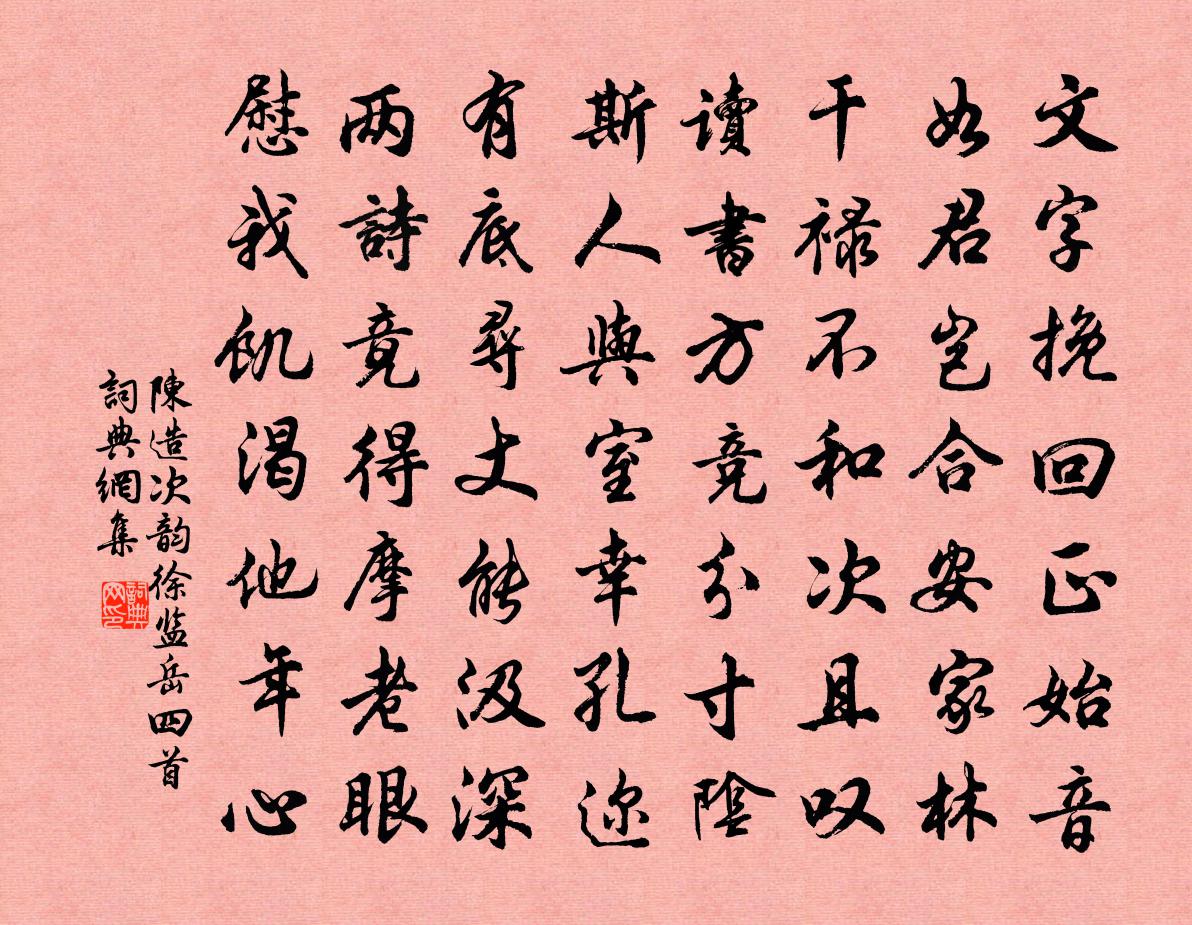 文字挽回正始音
如君岂合安家林
干禄不和次且叹
讀書方竞分寸陰
斯人與室幸孔迩
有底尋丈能汲深
两詩竟得摩老眼
慰我飢渴他年心
陳造次韵徐监岳四首
詞典網集
詞典网印